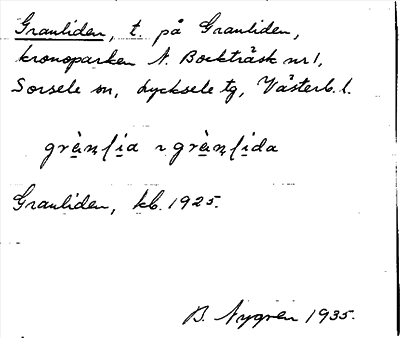 Granliden, t. på Granliden,
kronoparken N. Bockträsk nr 1,
Sorsele sn, Lycksele tg, Västerb. l.
Granliden, kb. 1925.
B. Nygren 1935.